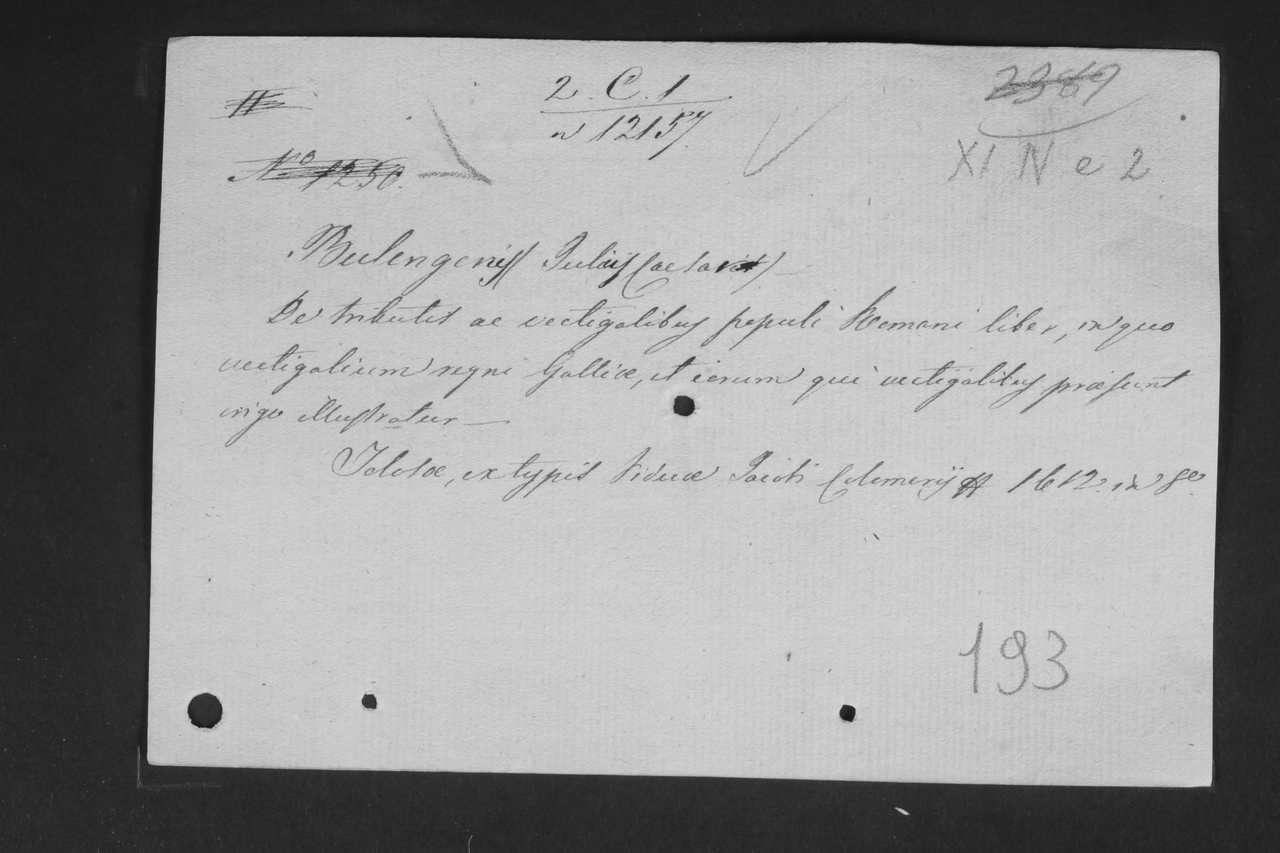 2. C. 1
n 12157
2389
N° 1250.
XI N e 2
Bulengerij Julij Caesaris
De tributis ac vectigalibus populi Romani liber, in quo
vectigalium regni Galliæ, et eorum qui vectigalibus præsunt
origo illustratur
Tolosæ, ex typis Viduæ Jacobi Colomerij 1612. in 8o
193